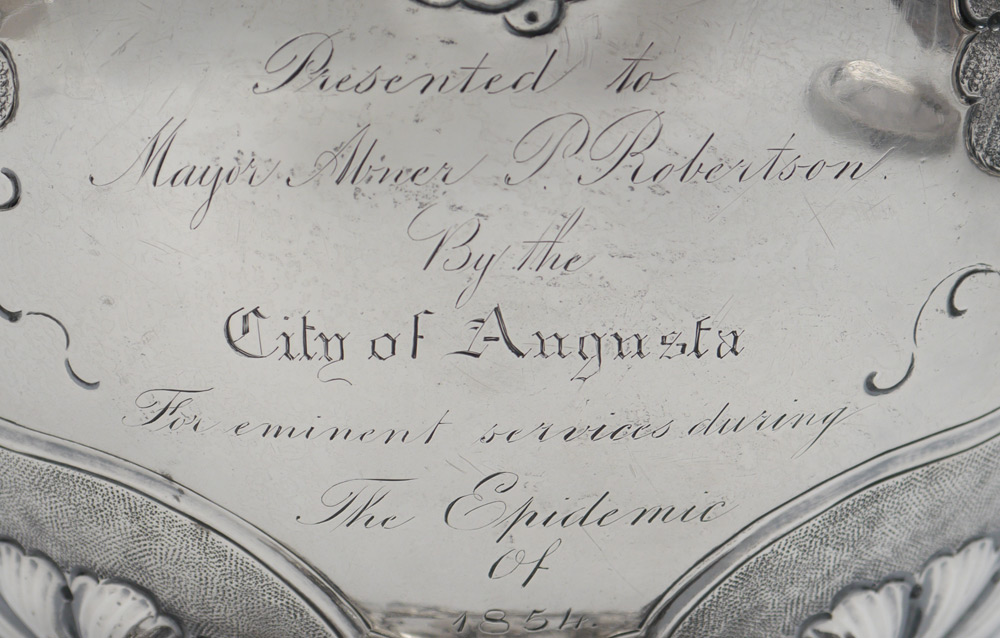 Presented to
Mayor Abner P. Robertson.
By the
City of Augusta
For eminent services during
The Epidemic
Of
1854.